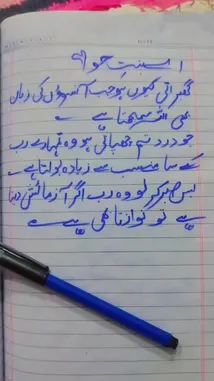 اے بنتِ حوا
گھبراتی کیوں ہو جب آنسوؤں کی زبان
بھی اللہ سمجھتا ہے۔
جو درد تم چھپاتی ہو وہ تمہارے رب
کے سامنے سب سے زیادہ بولتا ہے۔
بس صبر کر لو وہ رب اگر آزمائش دیتا
ہے تو نوازتا بھی ہے۔